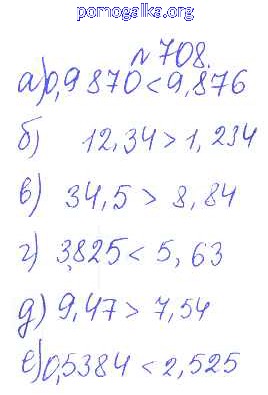 pomogalka.org
№708.
а) 0,9870 < 9,876
б) 12,34 > 1,234
в) 34,5 > 8,84
г) 3,825 < 5,63
д) 9,47 > 7,54
е) 0,5384 < 2,525